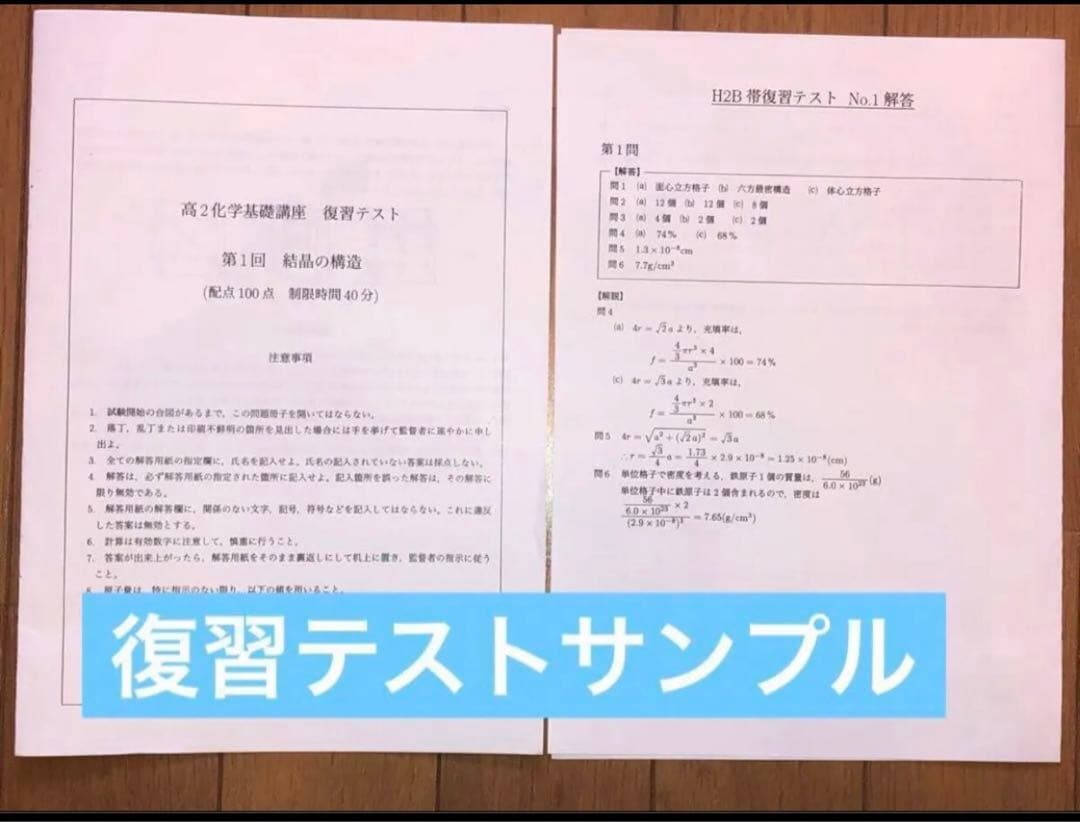 高2化学基礎講座 復習テスト
第1回 結晶の構造
(配点100点 制限時間40分)
注意事項
1. 試験開始の合図があるまで，この問題冊子を開いてはならない。
2. 落丁，乱丁または印刷不鮮明の箇所を見出した場合には手を挙げて監督者に速やかに申し
出よ。
3. 全ての解答用紙の指定欄に，氏名を記入せよ。氏名の記入されていない答案は採点しない。
4. 解答は，必ず解答用紙の指定された箇所に記入せよ。記入箇所を誤った解答は，その解答に
限り無効である。
5. 解答用紙の解答欄に，関係のない文字，記号，符号などを記入してはならない。これに違反
した答案は無効とする。
6. 計算は有効数字に注意して，慎重に行うこと。
7. 答案が出来上がったら，解答用紙をそのまま裏返しにして机上に置き，監督者の指示に従う
こと。
8. 原子量は，特に指示のない限り，以下の値を用いること。
H2B 帯復習テスト No.1 解答
第1問
【解答】
問1 (a) 面心立方格子 (b) 六方最密構造 (c) 体心立方格子
問2 (a) 12個 (b) 12個 (c) 8個
問3 (a) 4個 (b) 2個 (c) 2個
問4 (a) 74% (c) 68%
問5 1.3×10⁻⁸cm
問6 7.7g/cm³
【解説】
問4
(a) 4r = √2a より，充填率は，
f = (4/3 πr³ × 4)/a³ × 100 = 74%
(c) 4r = √3a より，充填率は，
f = (4/3 πr³ × 2)/a³ × 100 = 68%
問5 4r = √(a² + (√2a)²) = √3a
∴ r = √3/4 a = 1.73/4 × 2.9 × 10⁻⁸ = 1.25 × 10⁻⁸(cm)
問6 単位格子で密度を考える，鉄原子1個の質量は，56/(6.0 × 10²³)(g)
単位格子中に鉄原子は2個含まれるので，密度は
(56/(6.0 × 10²³) × 2)/(2.9 × 10⁻⁸)³ = 7.65(g/cm³)
復習テストサンプル